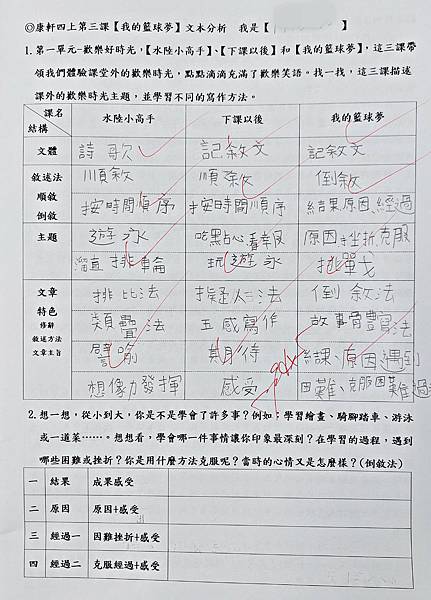 ◎康軒四上第三課【我的籃球夢】文本分析 我是【 】
1.第一單元-歡樂好時光，【水陸小高手】、【下課以後】和【我的籃球夢】，這三課帶
領我們體驗課堂外的歡樂時光，點點滴滴充滿了歡樂笑語。找一找，這三課描述
課外的歡樂時光主題，並學習不同的寫作方法。
課名 結構 水陸小高手 下課以後 我的籃球夢
文體 詩歌 記敘文 記敘文
敘述法 順敘 順敘 倒敘
順敘 倒敘 按時間順序 按時間順序 結果原因、經過
主題 遊泳 吃點心看書報 原因挫折、克服
溜直排輪 玩遊泳 挑戰
文章 排比法 擬人法 倒敘法
特色 修辭 類疊法 五感寫作 故事背豐寫法
敘述方法 譬喻 期待 結課、原因遇到
文章主旨 想像力發揮 感受 困難、克服困難過
2.想一想，從小到大，你是不是學會了許多事？例如：學習繪畫、騎腳踏車、游泳
或一道菜……。想想看，學會哪一件事情讓你印象最深刻？在學習的過程，遇到
哪些困難或挫折？你是用什麼方法克服呢？當時的心情又是怎麼樣？(倒敘法)
一 結果 成果感受
二 原因 原因+感受
三 經過一 困難挫折+感受
四 經過二 克服經過+感受